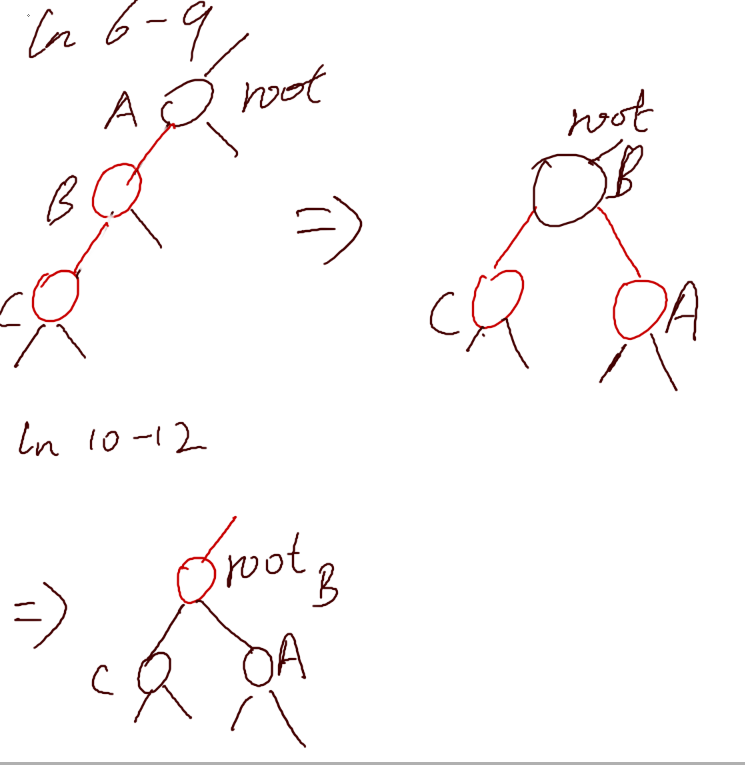 ln 6-9
A root
root
B
B
=>
C
C
A
ln 10-12
=>
root B
C
A